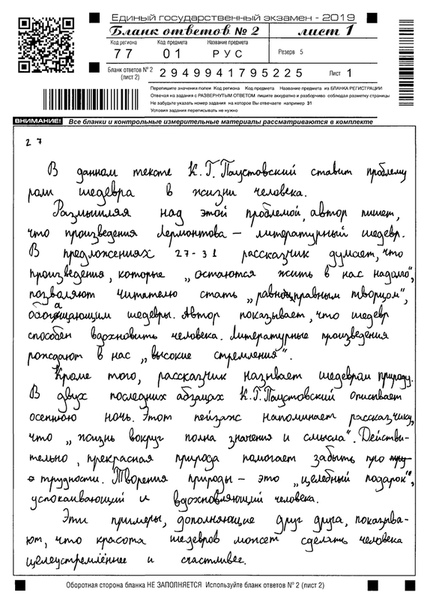 Единый государственный экзамен - 2019
Бланк ответов № 2 лист 1
Код региона Код предмета Название предмета
77 01 РУС Резерв 5
Бланк ответов № 2 (лист 2) 2949941795225 Лист 1
Перепишите значения полей Код региона Код предмета Название предмета из БЛАНКА РЕГИСТРАЦИИ
Отвечая на задания с РАЗВЕРНУТЫМ ОТВЕТОМ пишите аккуратно и разборчиво соблюдая разметку страницы
Не забудьте указать номер задания на которое Вы отвечаете например 31
Условия задания переписывать не нужно
ВНИМАНИЕ! Все бланки и контрольные измерительные материалы рассматриваются в комплекте
27
В данном тексте К.Г.Паустовский ставит проблему
роли шедевра в жизни человека.
Размышляя над этой проблемой, автор пишет,
что произведения Лермонтова – литературный шедевр.
В предложениях 27-31 рассказчик думает, что
произведения, которые „остаются жить в нас надолго",
позволяют читателю стать „равноправным творцом",
обогащающим шедевры. Автор показывает, что шедевр
способен вдохновить человека. Литературные произведения
рождают в нас „высокие стремления".
Кроме того, рассказчик называет шедевром природу.
В двух последних абзацах К.Г.Паустовский описывает
осеннюю ночь. Этот пейзаж напоминает рассказчику,
что „жизнь вокруг полна значения и смысла". Действи-
тельно, прекрасная природа помогает забыть про
трудности. Творения природы – это „целебный подарок",
успокаивающий и вдохновляющий человека.
Эти примеры, дополняющие друг друга, показыва-
ют, что красота шедевров может сделать человека
целеустремлённее и счастливее.
Оборотная сторона бланка НЕ ЗАПОЛНЯЕТСЯ Используйте бланк ответов № 2 (лист 2)